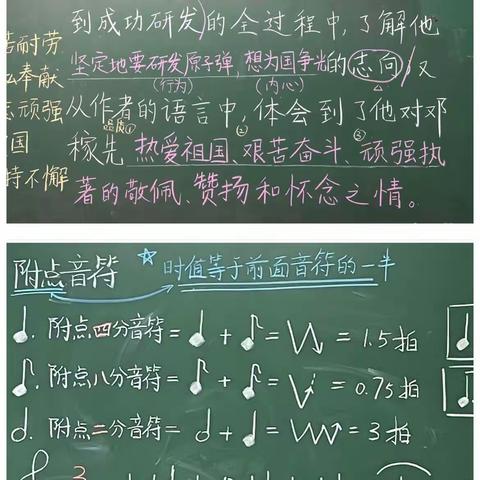 到成功研发)的全过程中,了解他
坚定地要研发原子弹,想为国争光的志向,又
(行为) (内心)
从作者的语言中,体会到了他对邓
品质① ② ③
稼先 热爱祖国、艰苦奋斗、顽强执
著的敬佩、赞扬和怀念之情。
苦耐劳
奉献
顽强
国
持不懈
附点音符 ☆ 时值等于前面音符的一半
附点四分音符= + = = 1.5拍
附点八分音符= + = = 0.75拍
附点二分音符= + = = 3拍
3